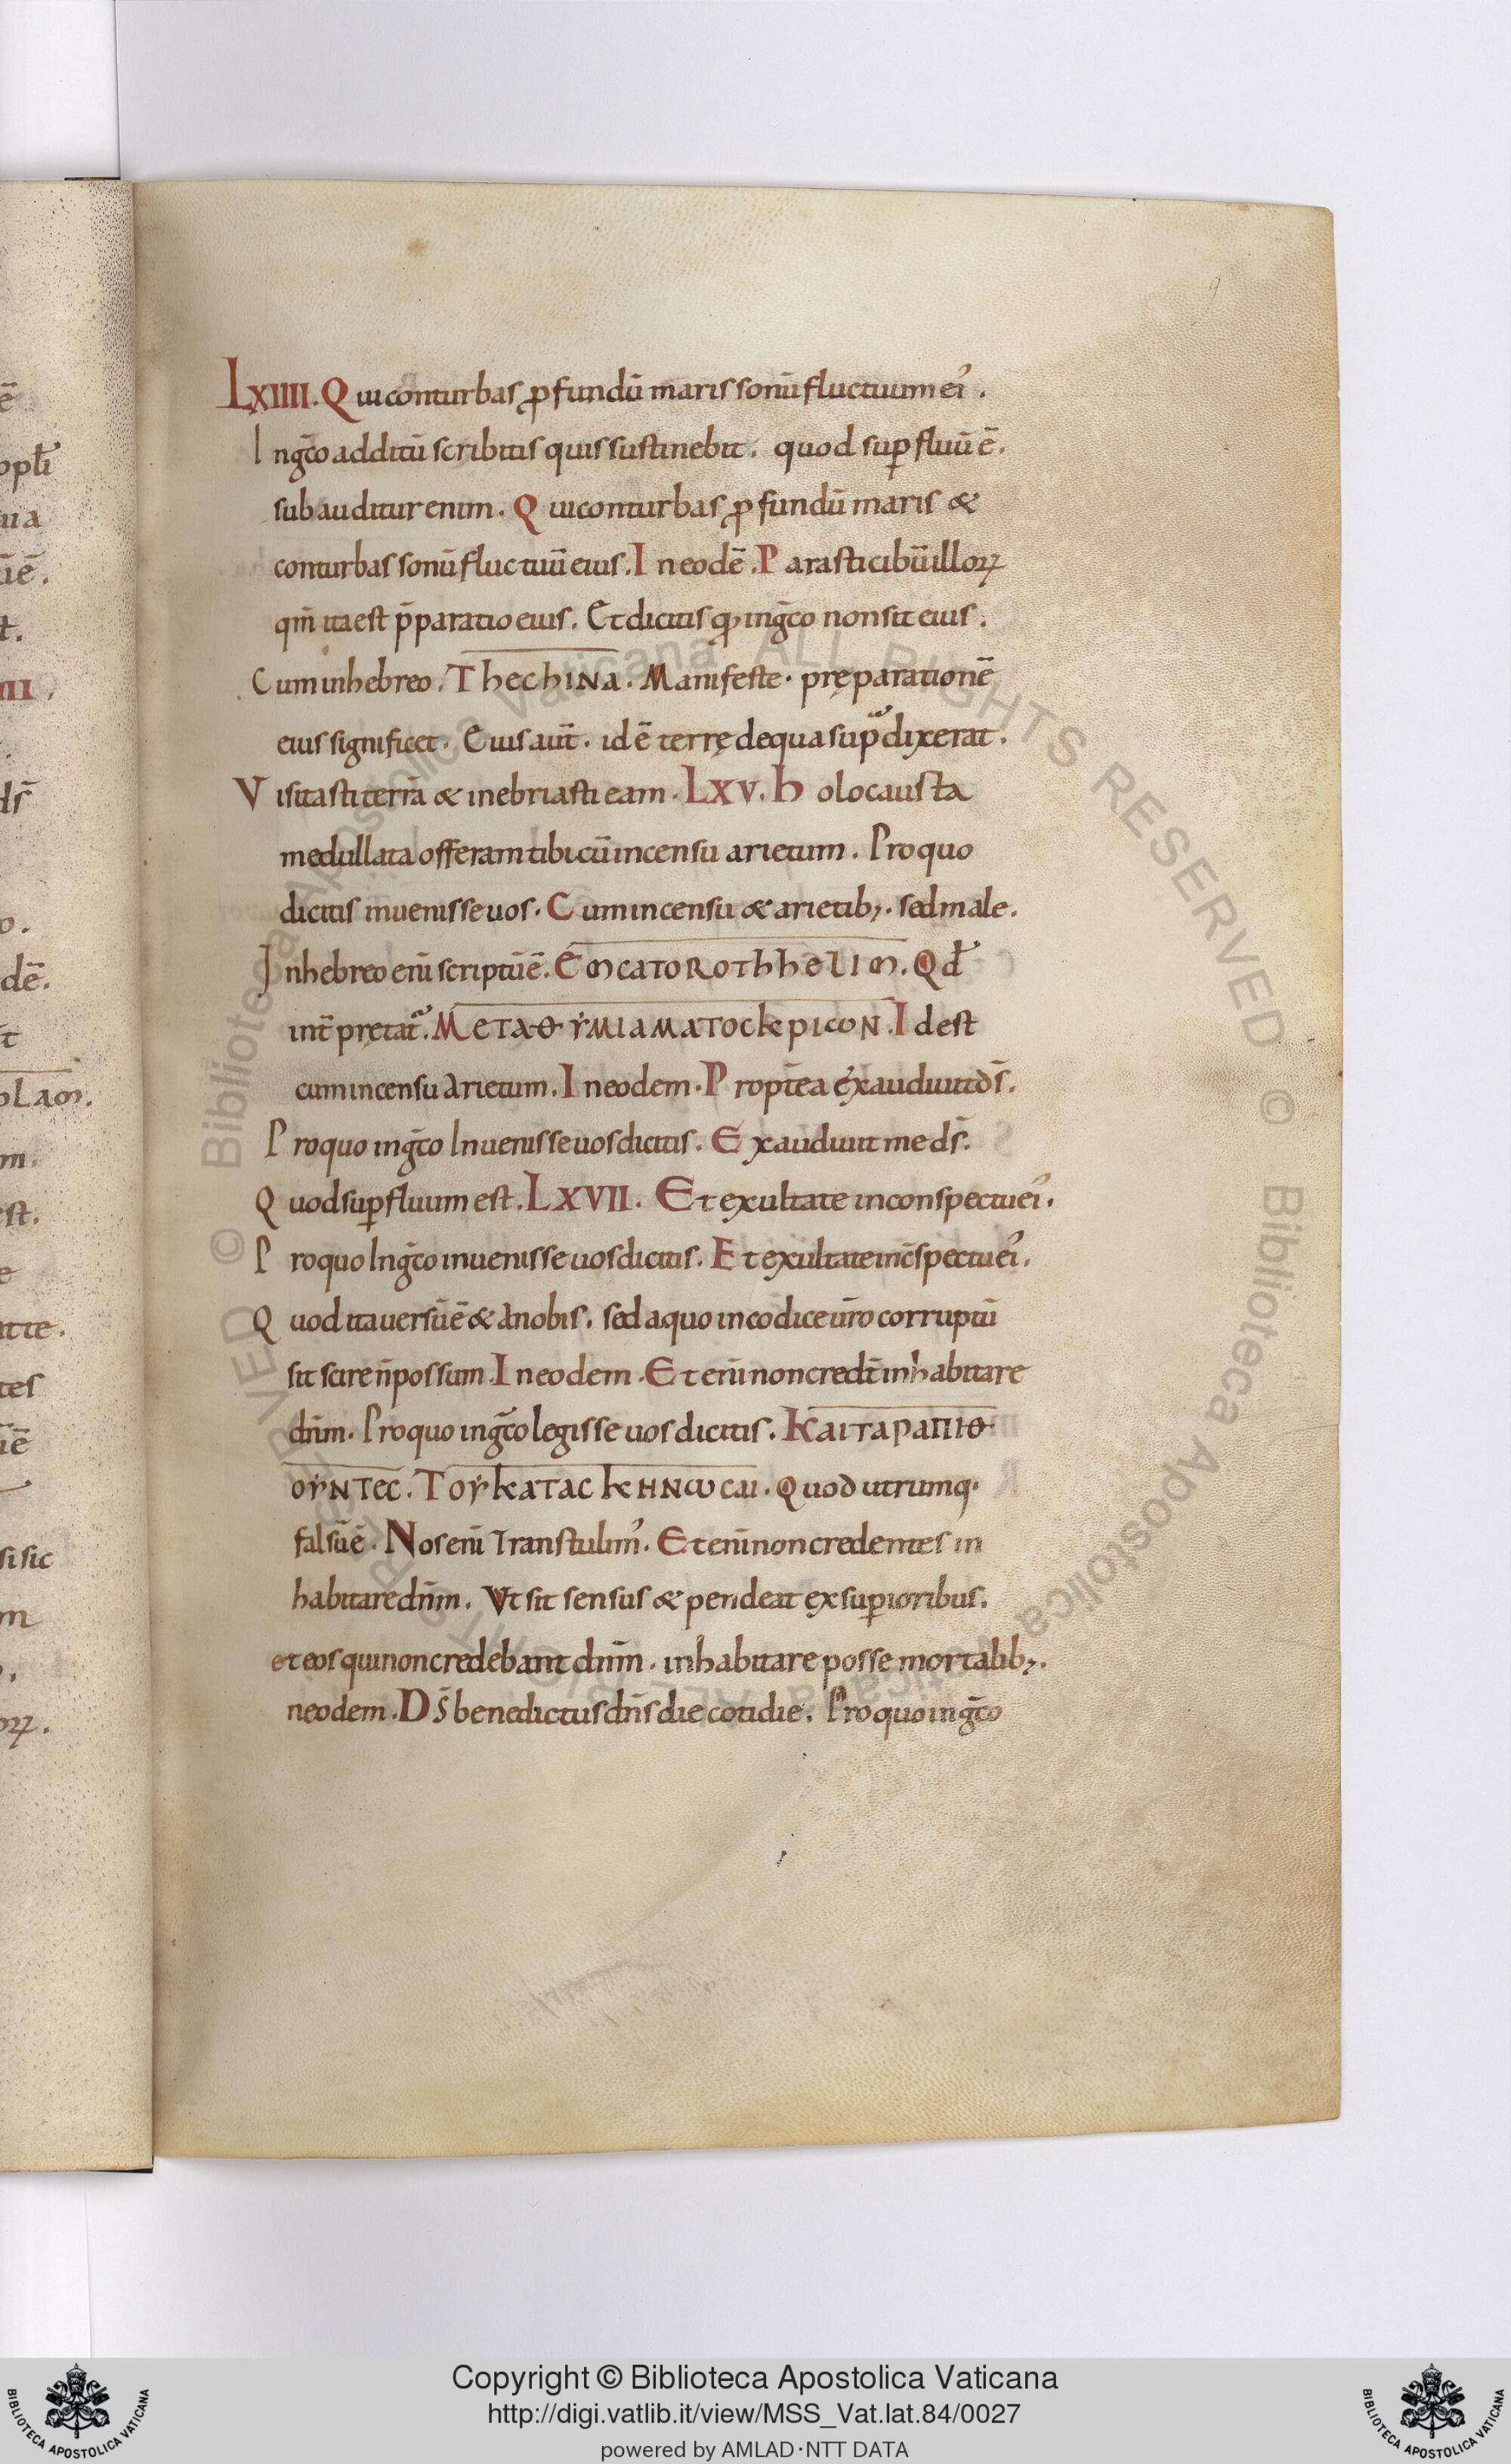 LXIIII. Qui conturbas ꝓfundū maris sonū fluctuum ei᾽.
In gr̄co additū scribitis quis sustinebit. quod suꝑfluū ē.
subauditur enim. Qui conturbas ꝓfundū maris &
conturbas sonū fluctuū eius. In eodē. Parasti cibū illoꝝ
qm̄ ita est p̄paratio eius. Et dicitis qꝫ in gr̄co non sit eius.
Cum in hebreo. ThechINa. Manifeste. pręparationē
eius significet. Eius aut̄. id ē terrę de qua supᵃ dixerat.
Visitasti terrā & inebriasti eam. LXV. holocausta
medullata offeram tibi cū incensu arietum. Pro quo
dicitis inuenisse uos. Cum incensu & arietibꝫ. sed male.
In hebreo eni̅ scriptū ē. EmcaToRoThhelim. Qd̄
int̄pretatᷓ. MeTaΘYMIaMaTOCkPIωN. Id est
cum incensu arietum. In eodem. Propt̄ea exaudiuit ds̄.
Pro quo in gr̄co Inuenisse uos dicitis. Exaudiuit me ds̄.
Quod suꝑfluum est. LXVII. Et exultate in conspectu ei᾽.
Pro quo In gr̄co inuenisse uos dicitis. Et exultate in cc̄spectu ei᾽.
Quod ita uersū ē & a nobis. sed a quo in codice ur̄o corruptū
sit scire n̄ possum. In eodem. Et eni̅ non credt̄ inhabitare
dn̄m. Pro quo in gr̄co legisse uos dicitis. KaITaPaΠIΘ
OYNTEC. TOYkaTaCkHNωCaI. Quod utrumqꝫ
falsū ē. Nos eni̅ Transtulim᾽. Et eni̅ non credentes in
habitare dn̄m. Vt sit sensus & pendeat ex suꝑioribus.
et eos qui non credebant dn̄m. inhabitare posse mortalibꝫ.
neodem. Ds̄ benedictus dn̄s die cotidie. Pro quo in gr̄co
Copyright © Biblioteca Apostolica Vaticana
http://digi.vatlib.it/view/MSS_Vat.lat.84/0027
powered by AMLAD·NTT DATA
BIBLIOTECA APOSTOLICA VATICANA
BIBLIOTECA APOSTOLICA VATICANA